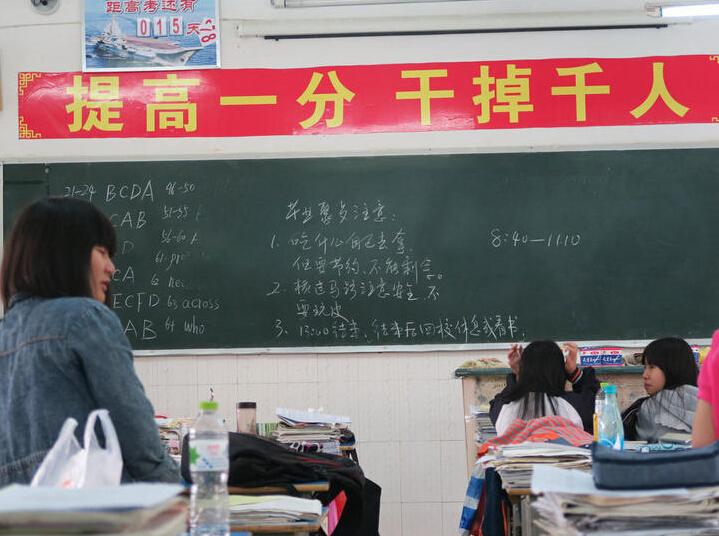 距高考还有
015天
提高一分 干掉千人
21-24 BCDA 46-50
CAB 51-55
D 56-60
61
CA 62
ECFD 63 across
AB 64 who
毕业聚会注意:
1. 吃什么自己去拿,
但要节约、不能剩
2. 横过马路注意安全、不
要玩皮
3、13:00结束、结束后回校休息或看书.
8:40—11:10